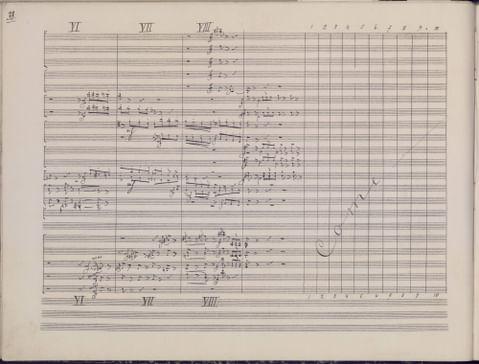 VI VII VIII 1 2 3 4 5 6 7 8 9 10
Come
VI VII VIII 1 2 3 4 5 6 7 8 9 10